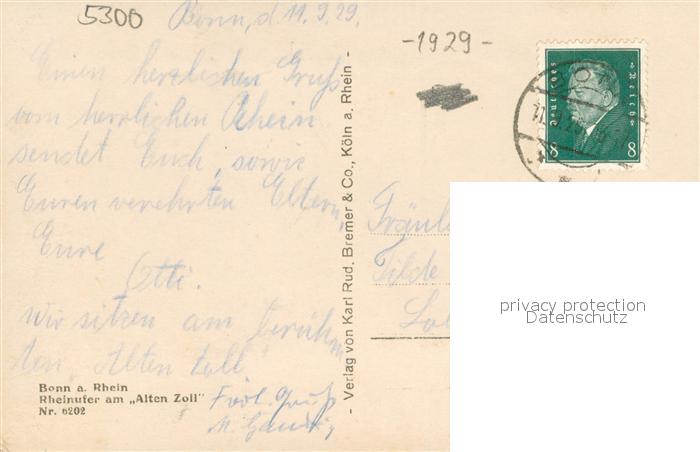 5300
Bonn, d 11.9.29.
-1929-
Einen herzlichen Gruß
vom herrlichen Rhein
sendet Euch, sowie
Euren verehrten Eltern,
Eure
Otti.
Wir sitzen am berühm
ten Alten Zoll
Gruß
Bonn a. Rhein
Rheinufer am „Alten Zoll"
Nr. 6202
- Verlag von Karl Rud. Bremer & Co., Köln a. Rhein -
Deutsches Reich
8 8
Fräule
Tilde
privacy protection
Datenschutz